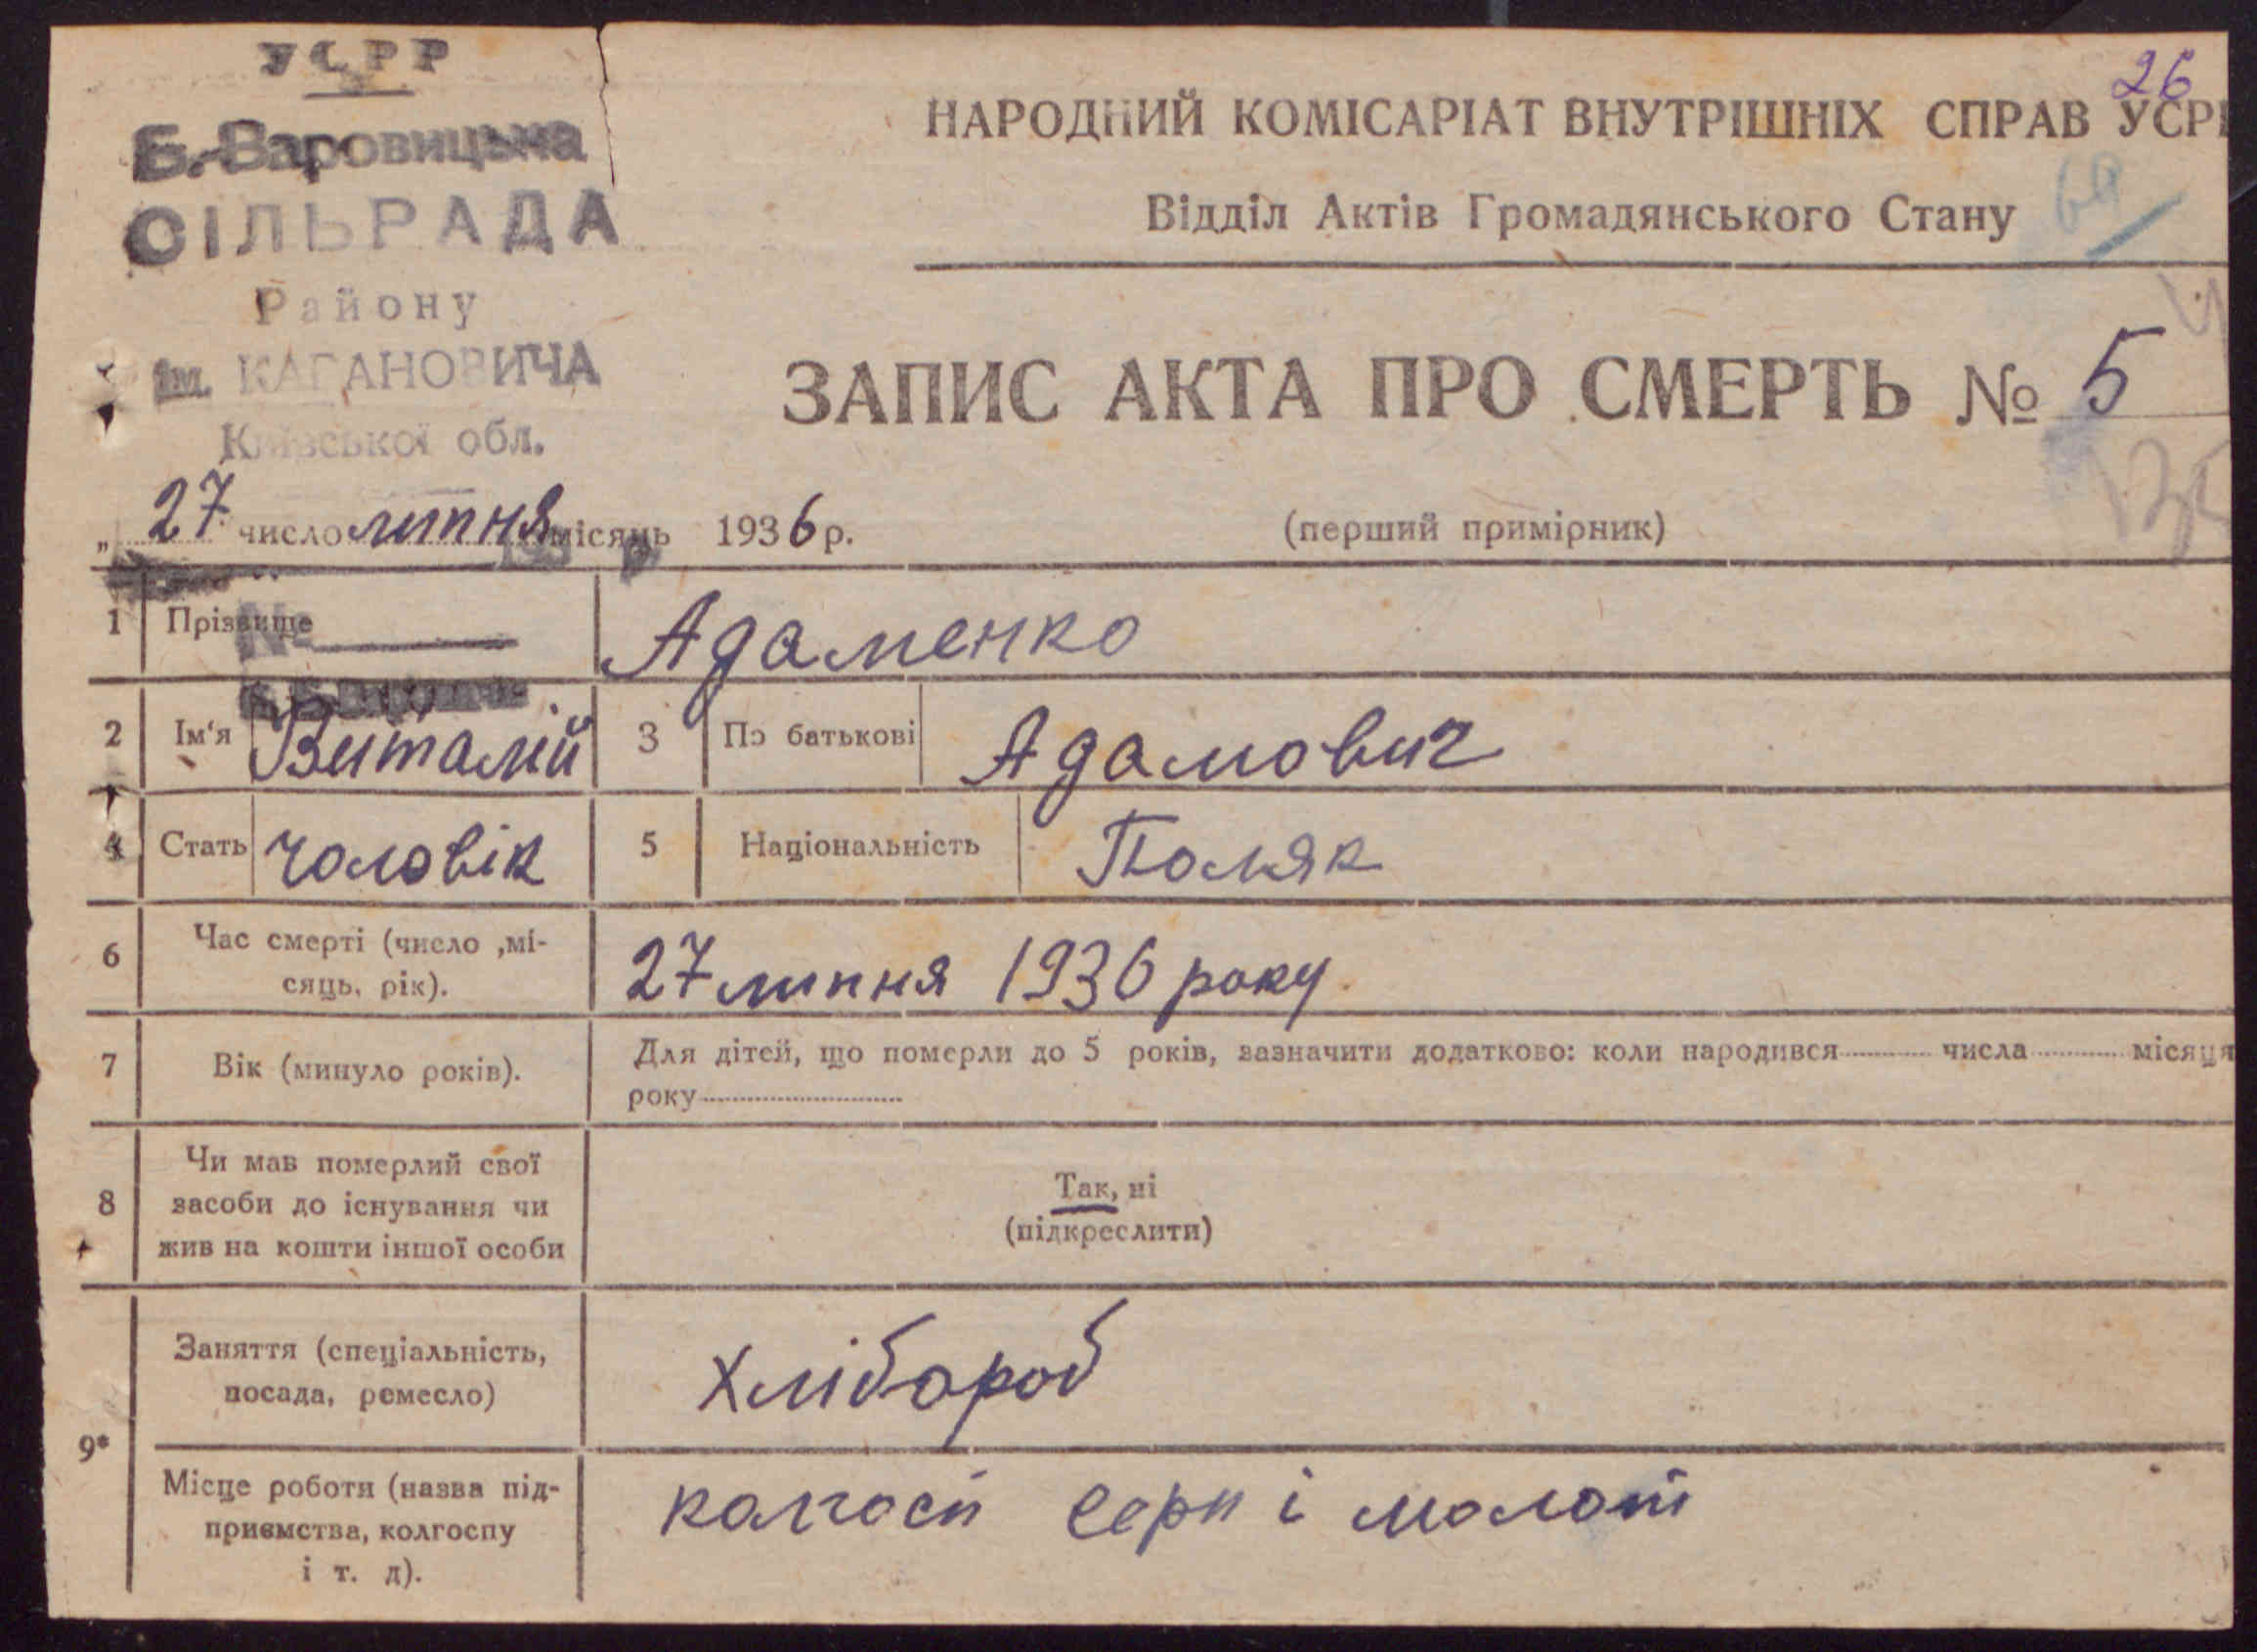 УСРР
Б.-Варовицька
СІЛЬРАДА
Району
ім. КАГАНОВИЧА
Київської обл.
26
НАРОДНИЙ КОМІСАРІАТ ВНУТРІШНІХ СПРАВ УСРР
Відділ Актів Громадянського Стану
ЗАПИС АКТА ПРО СМЕРТЬ № 5
„ 27 число липня місяць 1936 р.
(перший примірник)
1 Прізвище Адаменко
№
2 Ім'я Виталій 3 По батькові Адамович
4 Стать чоловік 5 Національність Поляк
6 Час смерті (число ,мі-
сяць, рік).
27 липня 1936 року
7 Вік (минуло років).
Для дітей, що померли до 5 років, зазначити додатково: коли народився числа місяця
року
8 Чи мав померлий свої
засоби до існування чи
жив на кошти іншої особи
Так, ні
(підкреслити)
9*
Заняття (спеціальність,
посада, ремесло)
Хлібороб
Місце роботи (назва під-
приємства, колгоспу
і т. д).
колгосп серп і молот